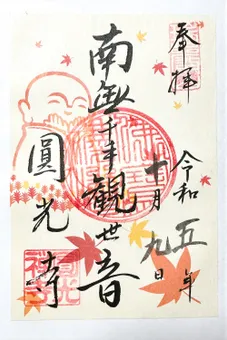 奉拝
令和五年
十月九日
南無千手観世音
圓光寺